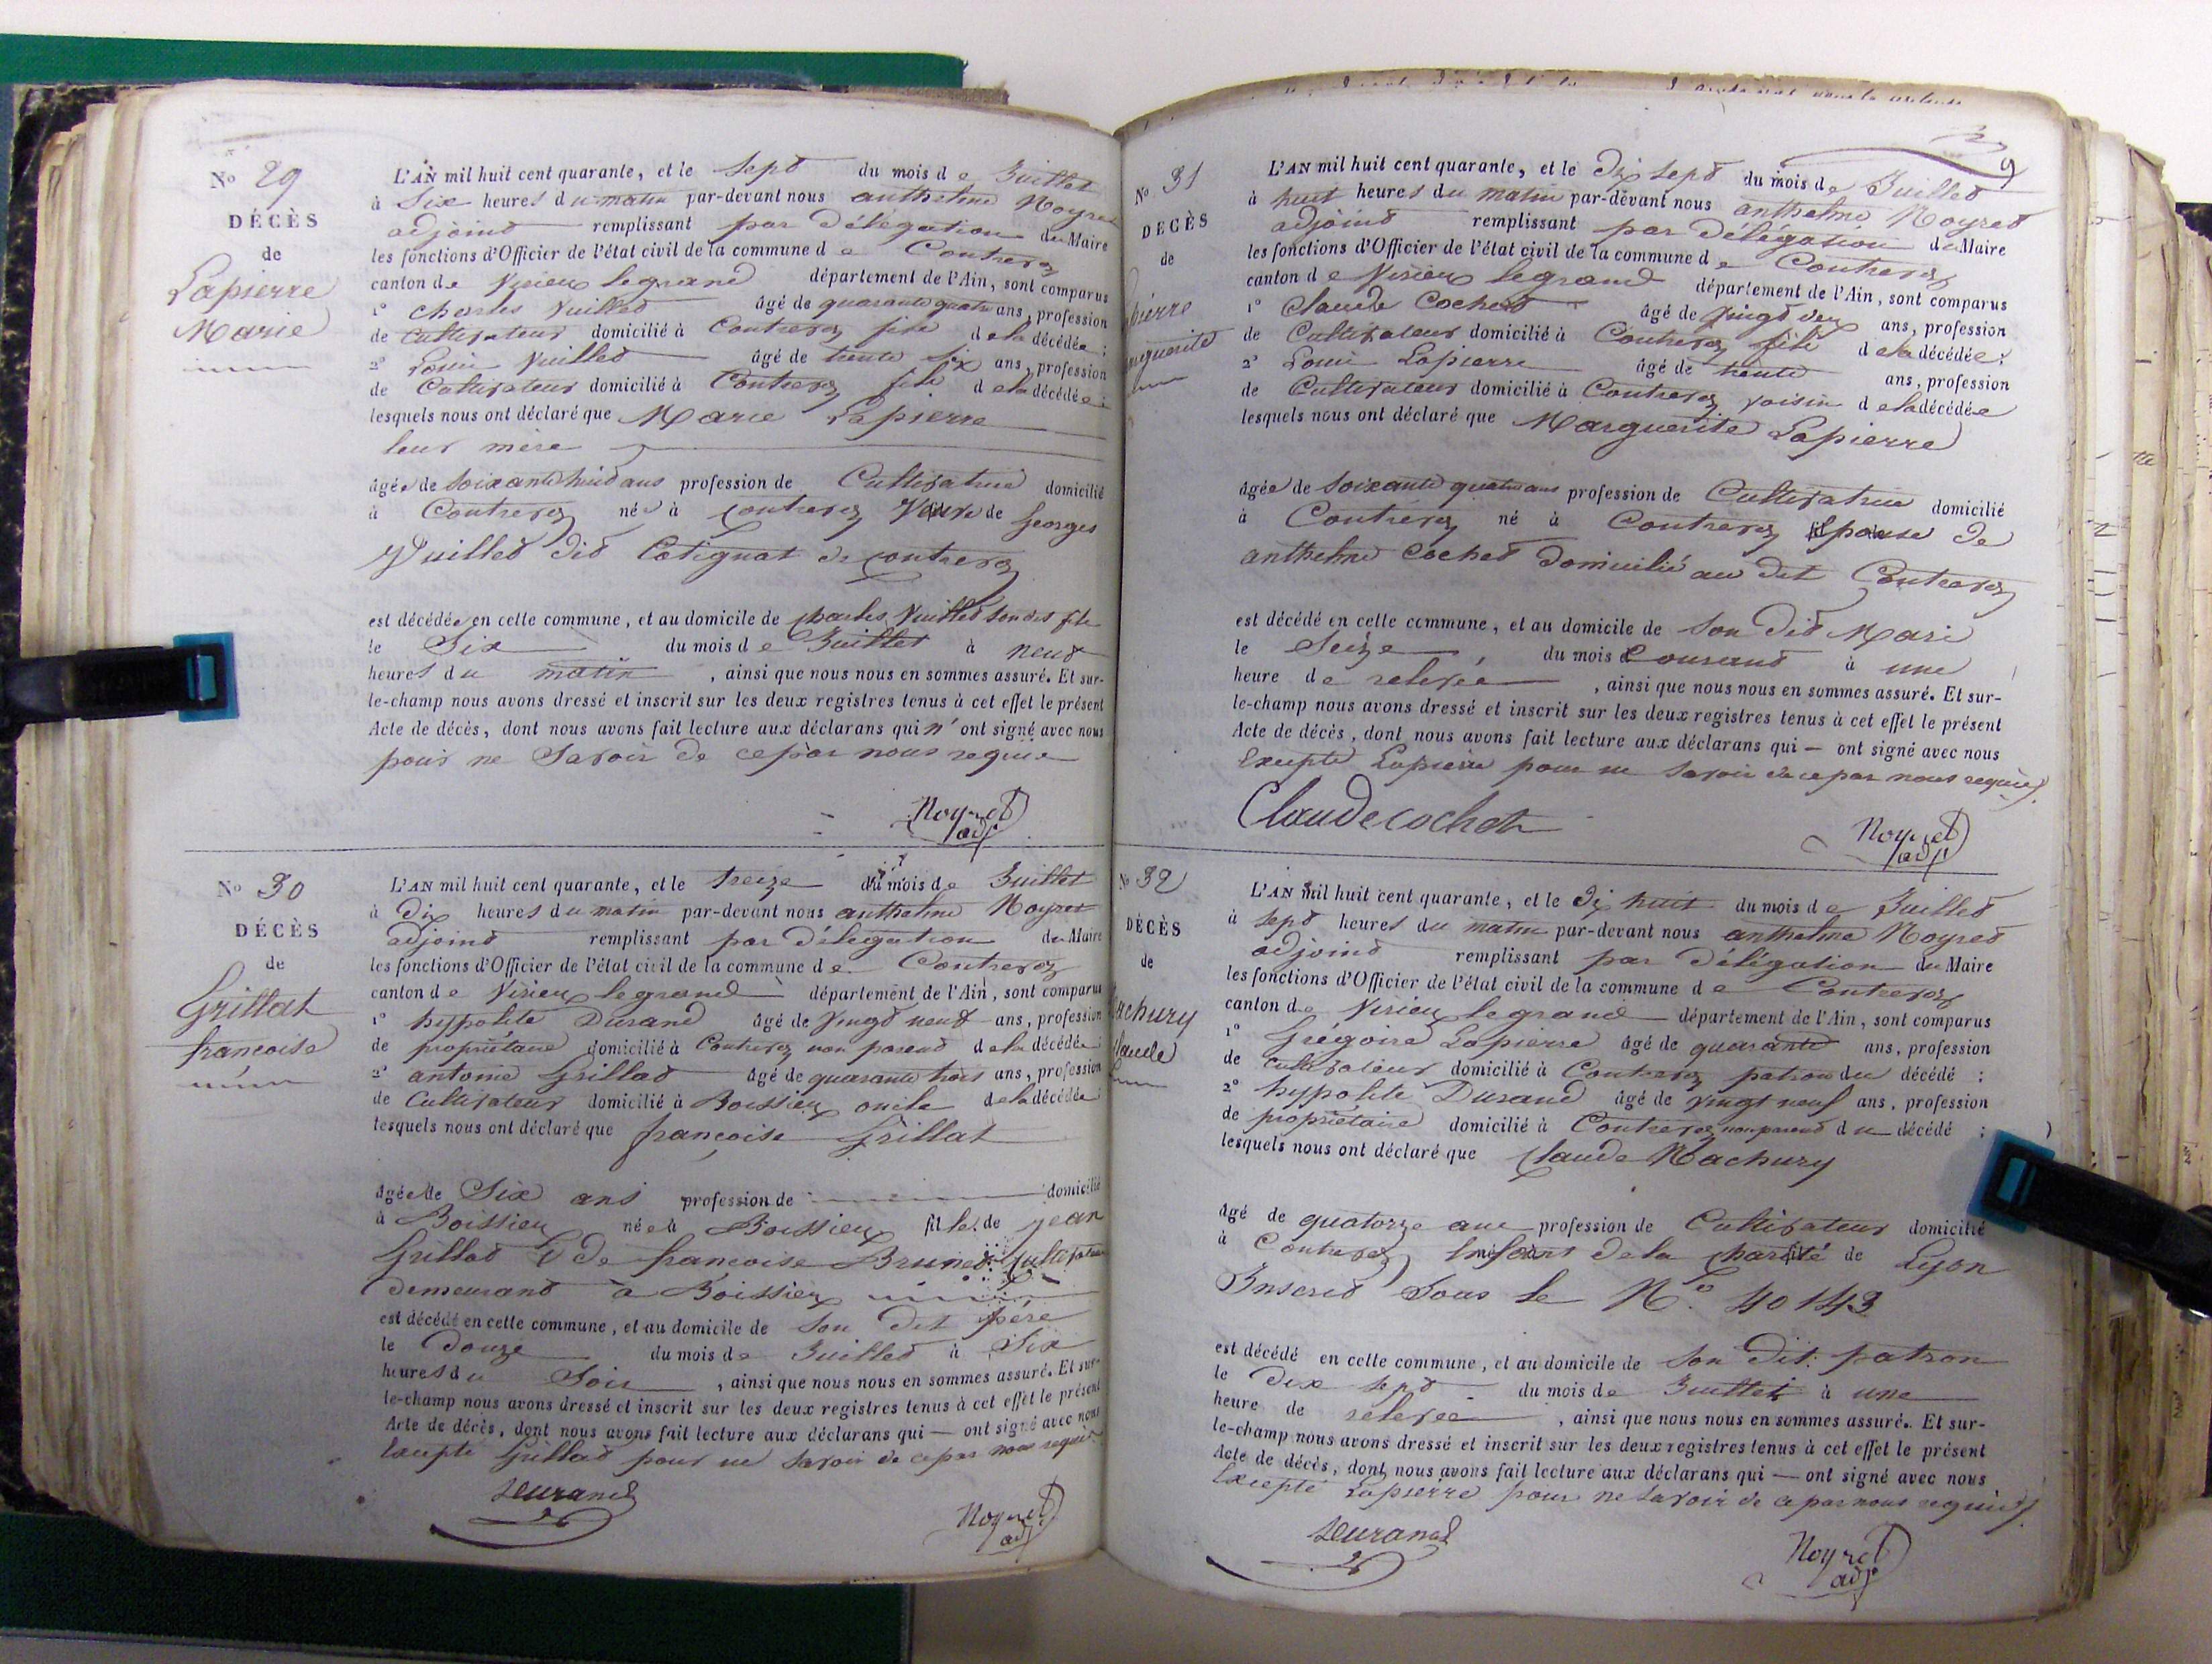 No 29
DÉCÈS
de
Lapierre
Marie
L'AN mil huit cent quarante, et le Sept du mois de Juillet
à Six heures du matin par-devant nous anthelme Noyret
adjoint remplissant par délégation du Maire
les fonctions d'Officier de l'état civil de la commune de Contrevoz
canton de Virieu legrand département de l'Ain, sont comparus
1° Charles Vuillet âgé de quarante quatre ans, profession
de Cultivateur domicilié à Contrevoz fils de la décédée ;
2° Louis Vuillet âgé de trente six ans, profession
de Cultivateur domicilié à Contrevoz fils de la décédée ;
lesquels nous ont déclaré que Marie Lapierre
leur mère
âgée de Soixante huit ans profession de Cultivatrice domicilié
à Contrevoz née à Contrevoz Veuve de Georges
Vuillet dit Cotignat de Contrevoz
est décédée en cette commune, et au domicile de Charles Vuillet son dit fils
le Six du mois de Juillet à neuf
heures du matin , ainsi que nous nous en sommes assuré. Et sur-
le-champ nous avons dressé et inscrit sur les deux registres tenus à cet effet le présent
Acte de décès, dont nous avons fait lecture aux déclarans qui n'ont signé avec nous
pour ne Savoir de ce par nous requis
Noyret
adjt
No 30
DÉCÈS
de
Grillat
françoise
L'AN mil huit cent quarante, et le treize du mois de Juillet
à Dix heures du matin par-devant nous anthelme Noyret
adjoint remplissant par délégation du Maire
les fonctions d'Officier de l'état civil de la commune de Contrevoz
canton de Virieu legrand département de l'Ain, sont comparus
1° hypolite Durand âgé de Vingt neuf ans, profession
de propriétaire domicilié à Contrevoz non parent de la décédée ;
2° antoine Grillat âgé de quarante trois ans, profession
de Cultivateur domicilié à Boissieu oncle de la décédée
lesquels nous ont déclaré que françoise Grillat
âgée de Six ans profession de domicilié
à Boissieu née à Boissieu fille de jean
Grillat & de françoise Brunet Cultivateurs
demeurant à Boissieu
est décédé en cette commune, et au domicile de Son dit père
le Douze du mois de Juillet à Six
heures du Soir , ainsi que nous nous en sommes assuré. Et sur-
le-champ nous avons dressé et inscrit sur les deux registres tenus à cet effet le présent
Acte de décès, dont nous avons fait lecture aux déclarans qui — ont signé avec nous
Excepté Grillat pour ne Savoir de ce par nous requis
Durand
Noyret
adjt
No 31
DÉCÈS
de
pierre
rguerite
L'AN mil huit cent quarante, et le Dix Sept du mois de Juillet
à huit heures du matin par-devant nous anthelme Noyret
adjoint remplissant par délégation du Maire
les fonctions d'Officier de l'état civil de la commune de Contrevoz
canton de Virieu legrand département de l'Ain, sont comparus
1° Claude Cochet âgé de Vingt deux ans, profession
de Cultivateur domicilié à Contrevoz fils de la décédée ;
2° Louis Lapierre âgé de trente ans, profession
de Cultivateur domicilié à Contrevoz voisin de la décédée
lesquels nous ont déclaré que Marguerite Lapierre
âgée de Soixante quatre ans profession de Cultivatrice domicilié
à Contrevoz né à Contrevoz Epouse de
anthelme Cochet Domicilié au dit Contrevoz
est décédé en cette commune, et au domicile de Son dit Mari
le Seize du mois Courant à une
heure de relevée , ainsi que nous nous en sommes assuré. Et sur-
le-champ nous avons dressé et inscrit sur les deux registres tenus à cet effet le présent
Acte de décès, dont nous avons fait lecture aux déclarans qui — ont signé avec nous
Excepté Lapierre pour ne Savoir de ce par nous requis
Claude cochet
Noyret
adjt
No 32
DÉCÈS
de
achury
laude
L'AN mil huit cent quarante, et le Dix huit du mois de Juillet
à Sept heures du matin par-devant nous anthelme Noyret
adjoint remplissant par délégation du Maire
les fonctions d'Officier de l'état civil de la commune de Contrevoz
canton de Virieu legrand département de l'Ain, sont comparus
1° Grégoire Lapierre âgé de quarante ans, profession
de cultivateur domicilié à Contrevoz patron du décédé ;
2° hypolite Durand âgé de Vingt neuf ans, profession
de propriétaire domicilié à Contrevoz non parent du décédé ;
lesquels nous ont déclaré que Claude Machury
âgé de quatorze ans profession de Cultivateur domicilié
à Contrevoz Enfant de la Charité de Lyon
Inscrit Sous le No 40143
est décédé en cette commune, et au domicile de Son dit patron
le Dix Sept du mois de Juillet à une
heure de relevée , ainsi que nous nous en sommes assuré. Et sur-
le-champ nous avons dressé et inscrit sur les deux registres tenus à cet effet le présent
Acte de décès, dont nous avons fait lecture aux déclarans qui — ont signé avec nous
Excepté Lapierre pour ne Savoir de ce par nous requis
Durand
Noyret
adjt